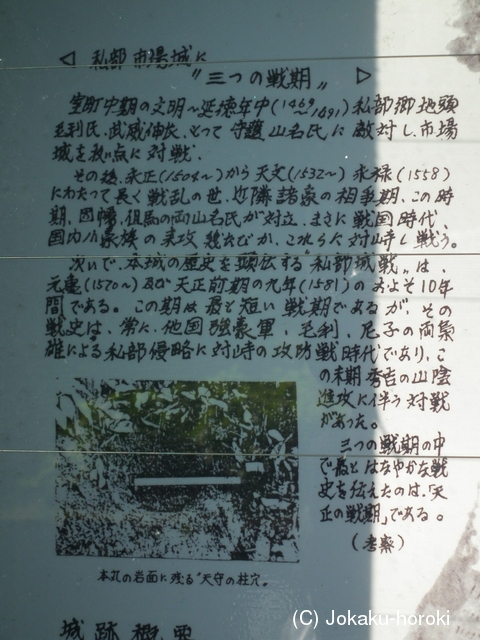 ◁ 私部市場城に
〝三つの戦期〟 ▷
室町中期の文明～延徳年中(1469～1491)私部郷地頭
毛利氏、武威伸長、もって守護山名氏に敵対し、市場
城を拠点に対戦、
その後、永正(1504～)から天文(1532～)永禄(1558)
にわたって長く戦乱の世、近隣諸豪の相争期、この時
期、因幡、但馬の両山名氏が対立、まさに戦国時代、
国内小豪族の来攻幾たびか、これらに対峙し戦う。
次いで、本城の歴史を顕伝する「私部城戦」は、
元亀(1570～)及び天正前期の九年(1581)のおよそ10年
間である。この期は最と短い戦期であるが、その
戦史は、常に、他国強豪軍、毛利、尼子の両梟
雄による私部侵略に対峙の攻防戦時代であり、こ
の末期秀吉の山陰
進攻に伴う対戦
があった。
三つの戦期の中
で最とはなやかな戦
史を伝えたのは、「天
正の戦期」である。
(考察)
本丸の岩面に残る〝天守の柱穴〟
城跡概要
(C) Jokaku-horoki